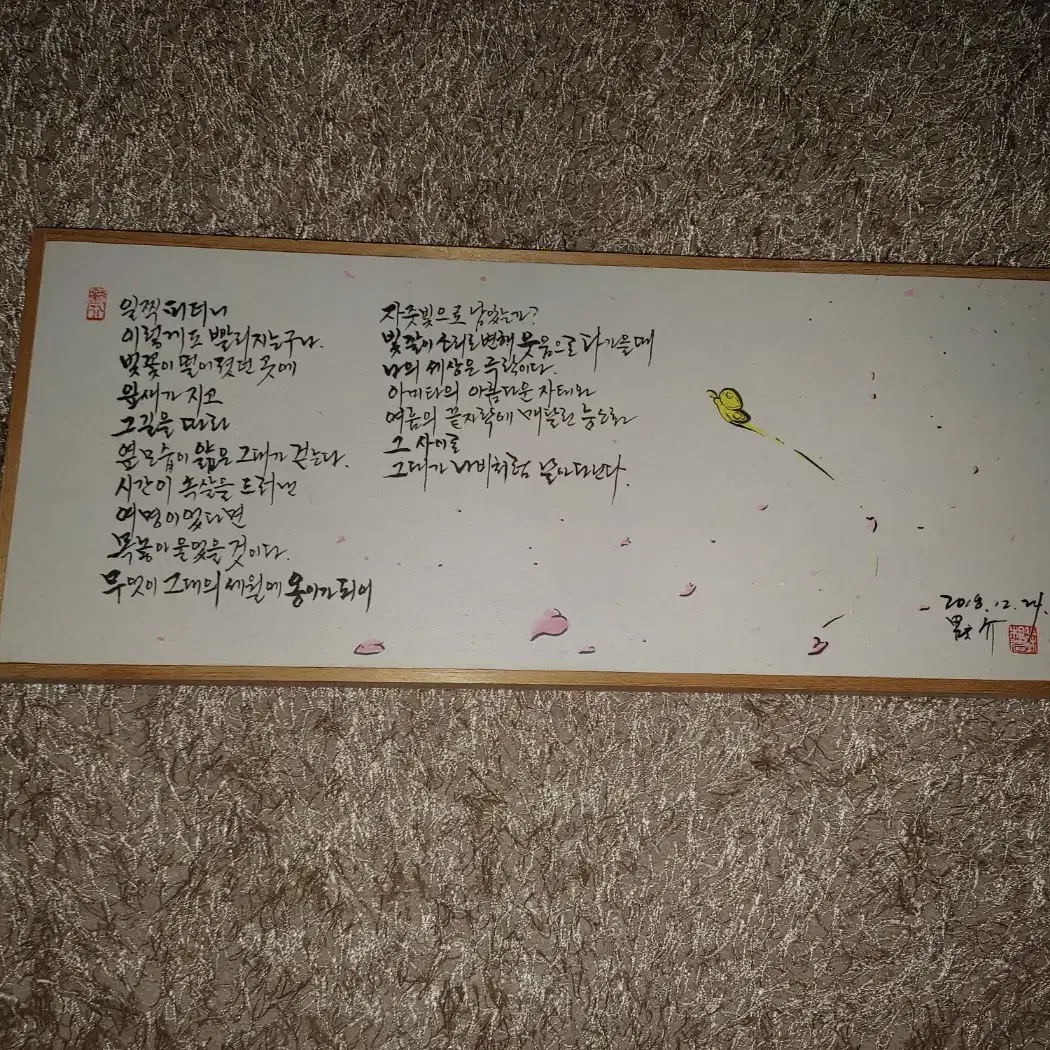 일찍 피더니
이렇게도 빨리 지는구나.
빛꽃이 떨어졌던 곳에
잎새가 지고
그길을 따라
옆모습이 닮은 그대가 걷는다.
시간이 속살을 드러낸
여명이었다면
목놓아 울었을 것이다.
무엇이 그대의 세월에 옹이가 되어
자줏빛으로 남았는가?
빛깔이 소리로 변해 웃음으로 다가올때
나의 세상은 추락이다.
아미타의 아름다운 자태와
여름의 끝자락에 매달린
그 사이로
그대가 나비처럼 날아다닌다.
2018. 12. 24.